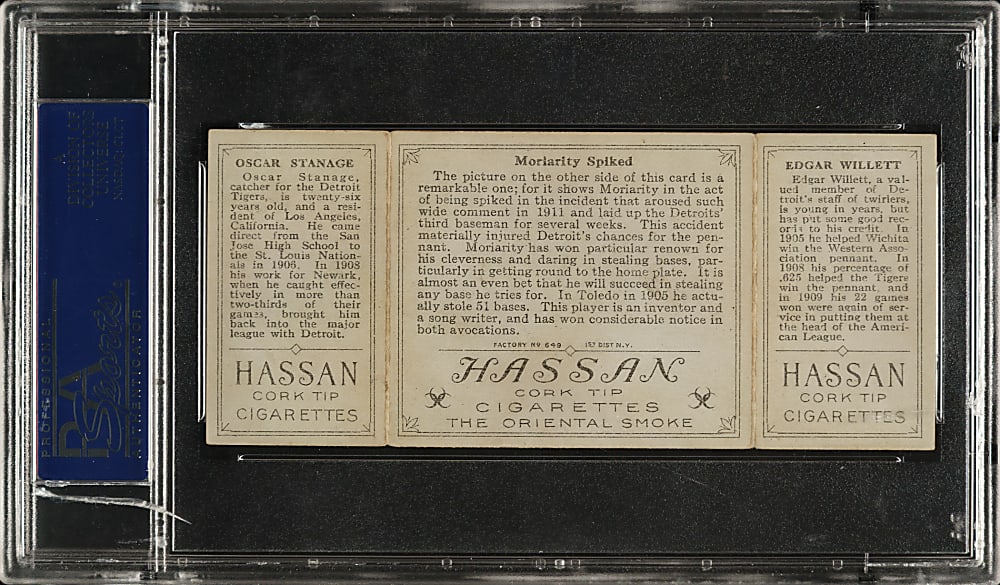 OSCAR STANAGE
Oscar Stanage,
catcher for the Detroit
Tigers, is twenty-six
years old, and a resi-
dent of Los Angeles,
California. He came
direct from the San
Jose High School to
the St. Louis Nation-
als in 1906. In 1908
his work for Newark,
when he caught effec-
tively in more than
two-thirds of their
games, brought him
back into the major
league with Detroit.
HASSAN
CORK TIP
CIGARETTES
Moriarity Spiked
The picture on the other side of this card is a
remarkable one; for it shows Moriarity in the act
of being spiked in the incident that aroused such
wide comment in 1911 and laid up the Detroits'
third baseman for several weeks. This accident
materially injured Detroit's chances for the pen-
nant. Moriarity has won particular renown for
his cleverness and daring in stealing bases, par-
ticularly in getting round to the home plate. It is
almost an even bet that he will succeed in stealing
any base he tries for. In Toledo in 1905 he actu-
ally stole 51 bases. This player is an inventor and
a song writer, and has won considerable notice in
both avocations.
FACTORY No 649 1ST DIST N.Y.
HASSAN
CORK TIP
CIGARETTES
THE ORIENTAL SMOKE
EDGAR WILLETT
Edgar Willett, a val-
ued member of De-
troit's staff of twirlers,
is young in years, but
has put some good rec-
ords to his credit. In
1905 he helped Wichita
win the Western Asso-
ciation pennant. In
1908 his percentage of
.625 helped the Tigers
win the pennant, and
in 1909 his 22 games
won were again of ser-
vice in putting them at
the head of the Ameri-
can League.
HASSAN
CORK TIP
CIGARETTES
PROFESSIONAL
PSA
Sports
AUTHENTICATOR
A
DIVISION OF
COLLECTORS
UNIVERSE
NASDAQ: CLCT